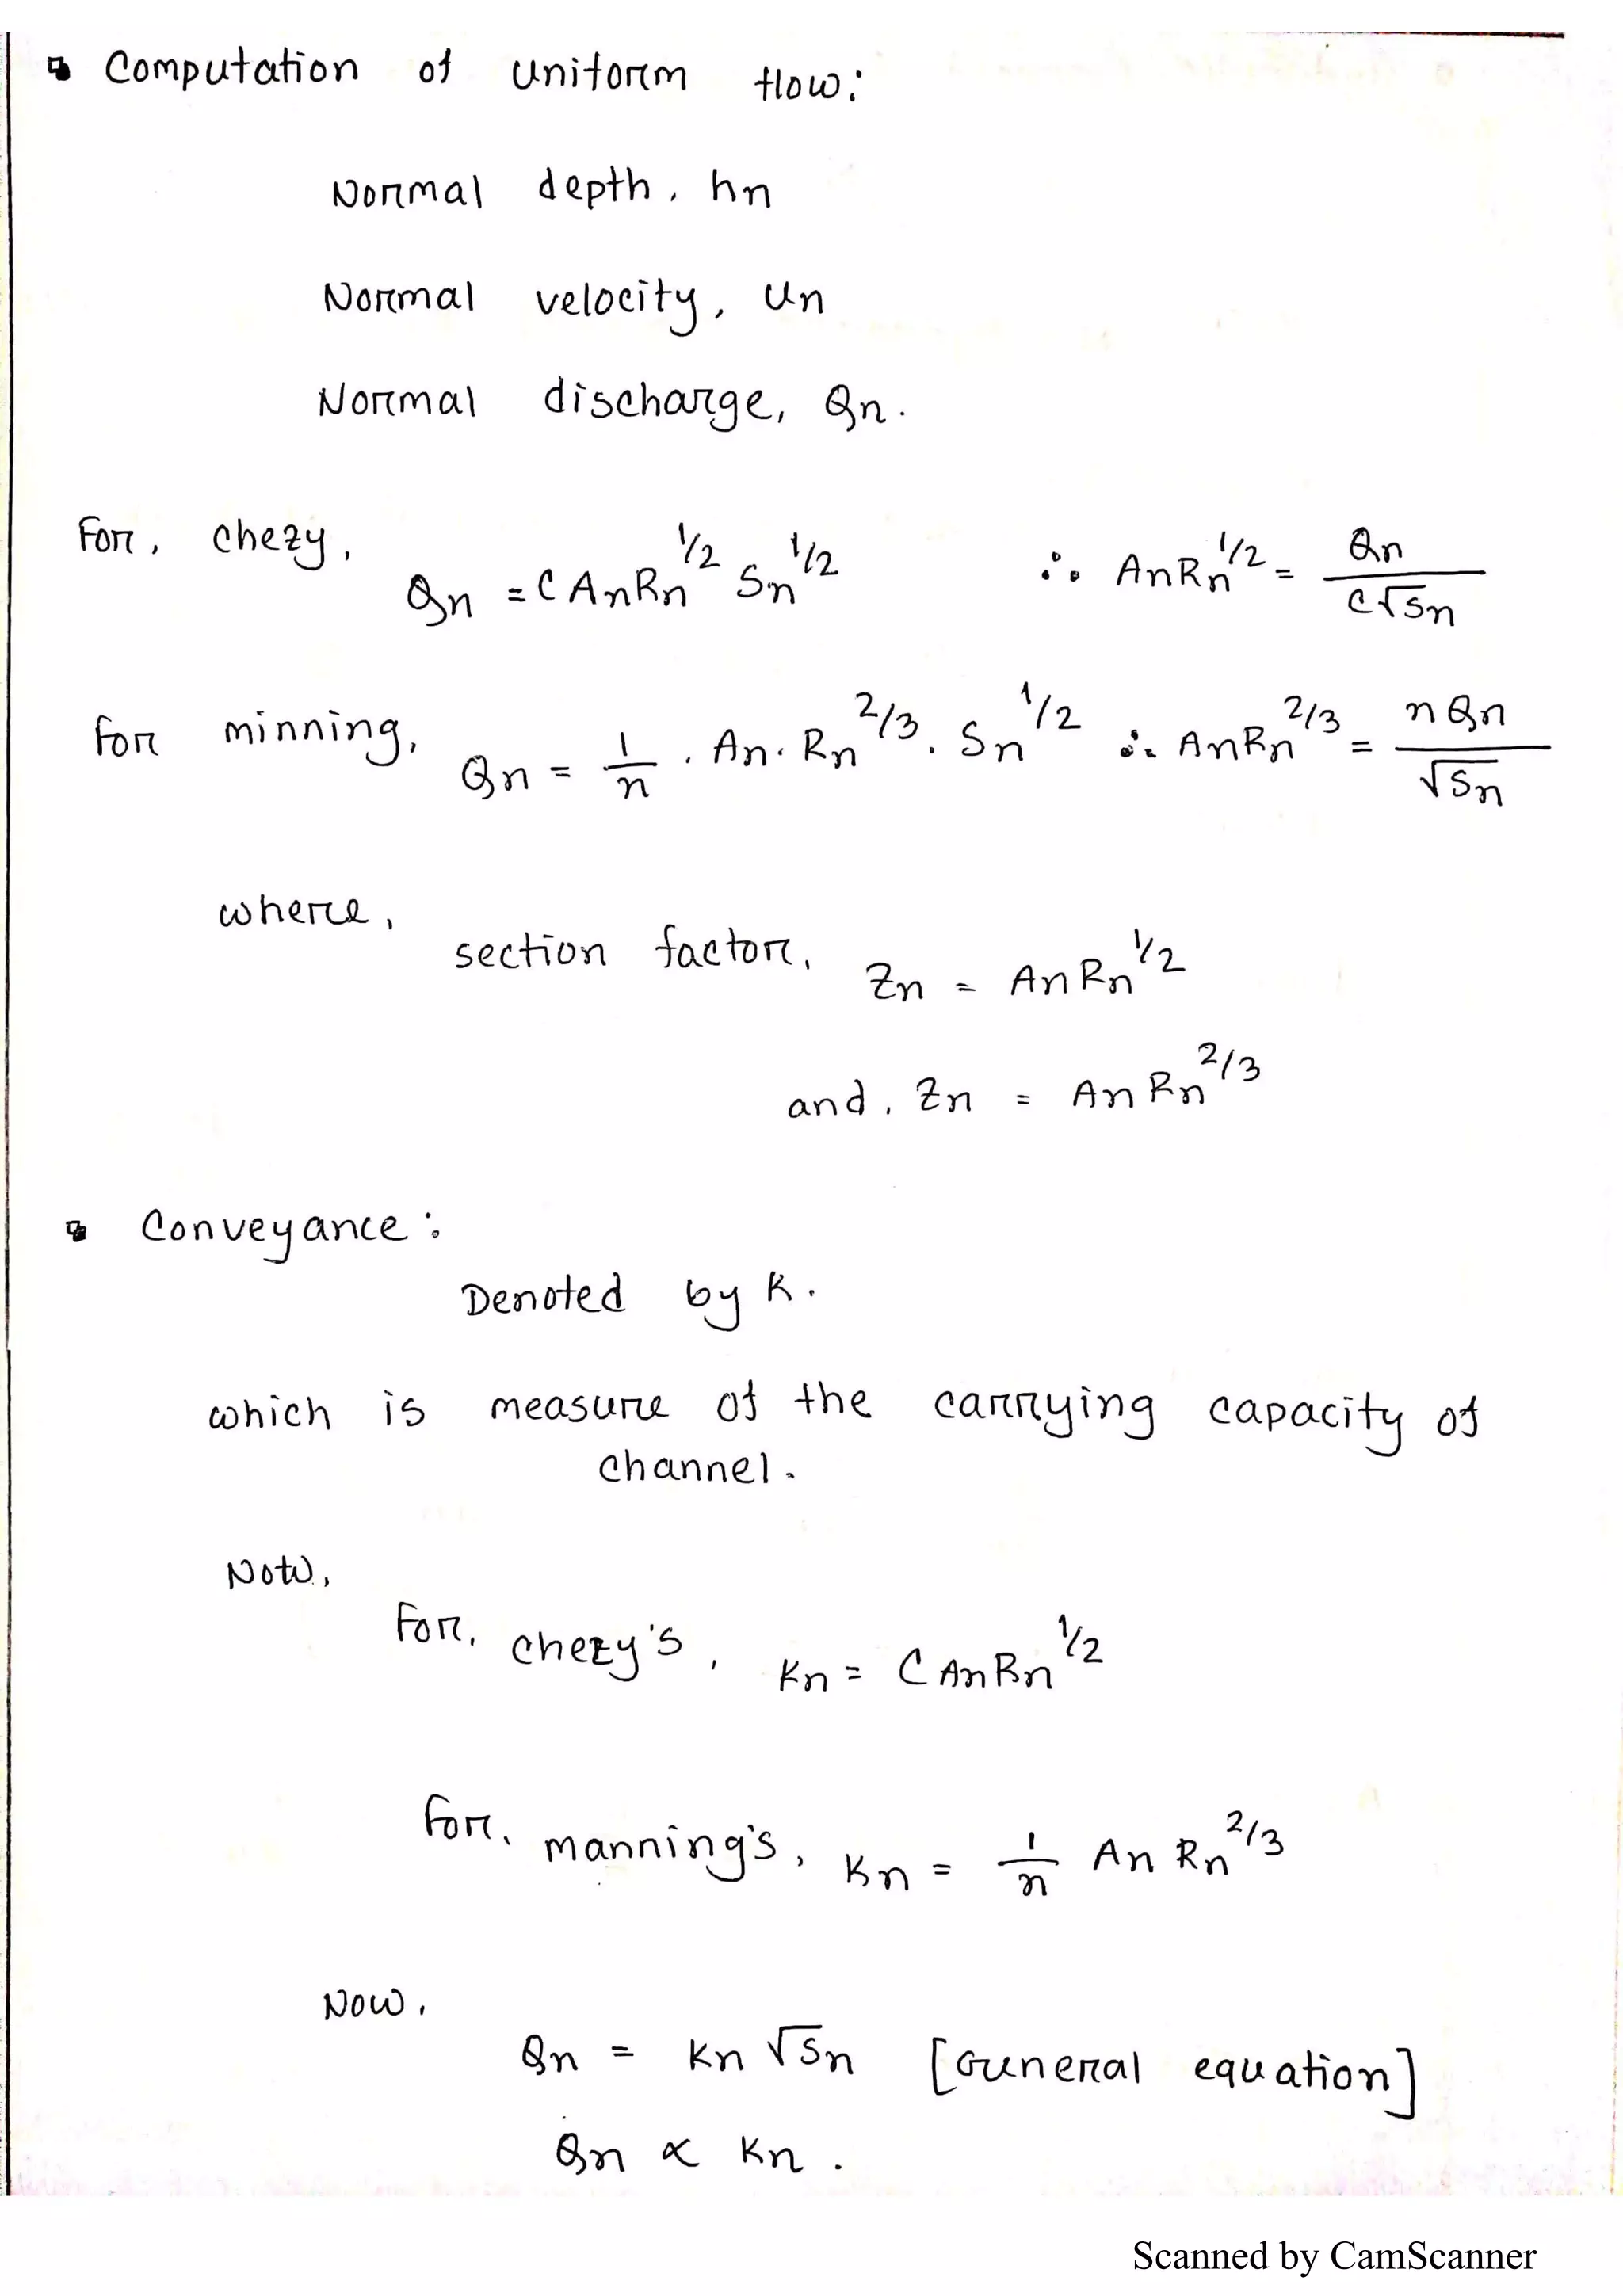 Computation of uniform flow:
Normal depth, hn
Normal velocity, Un
Normal discharge, Qn.
For, chezy, Qn = C An Rn^1/2 Sn^1/2 ∴ An Rn^1/2 = Qn / C√Sn
For minning, Qn = 1/n . An . Rn^2/3 . Sn^1/2 ∴ An Rn^2/3 = n Qn / √Sn
where,
section factor, Zn = An Rn^1/2
and, Zn = An Rn^2/3
Conveyance:
Denoted by K.
which is measure of the carrying capacity of
channel.
Now,
For, chezy's, Kn = C An Rn^1/2
For, manning's, Kn = 1/n An Rn^2/3
Now,
Qn = Kn √Sn [General equation]
Qn ∝ Kn .
Scanned by CamScanner